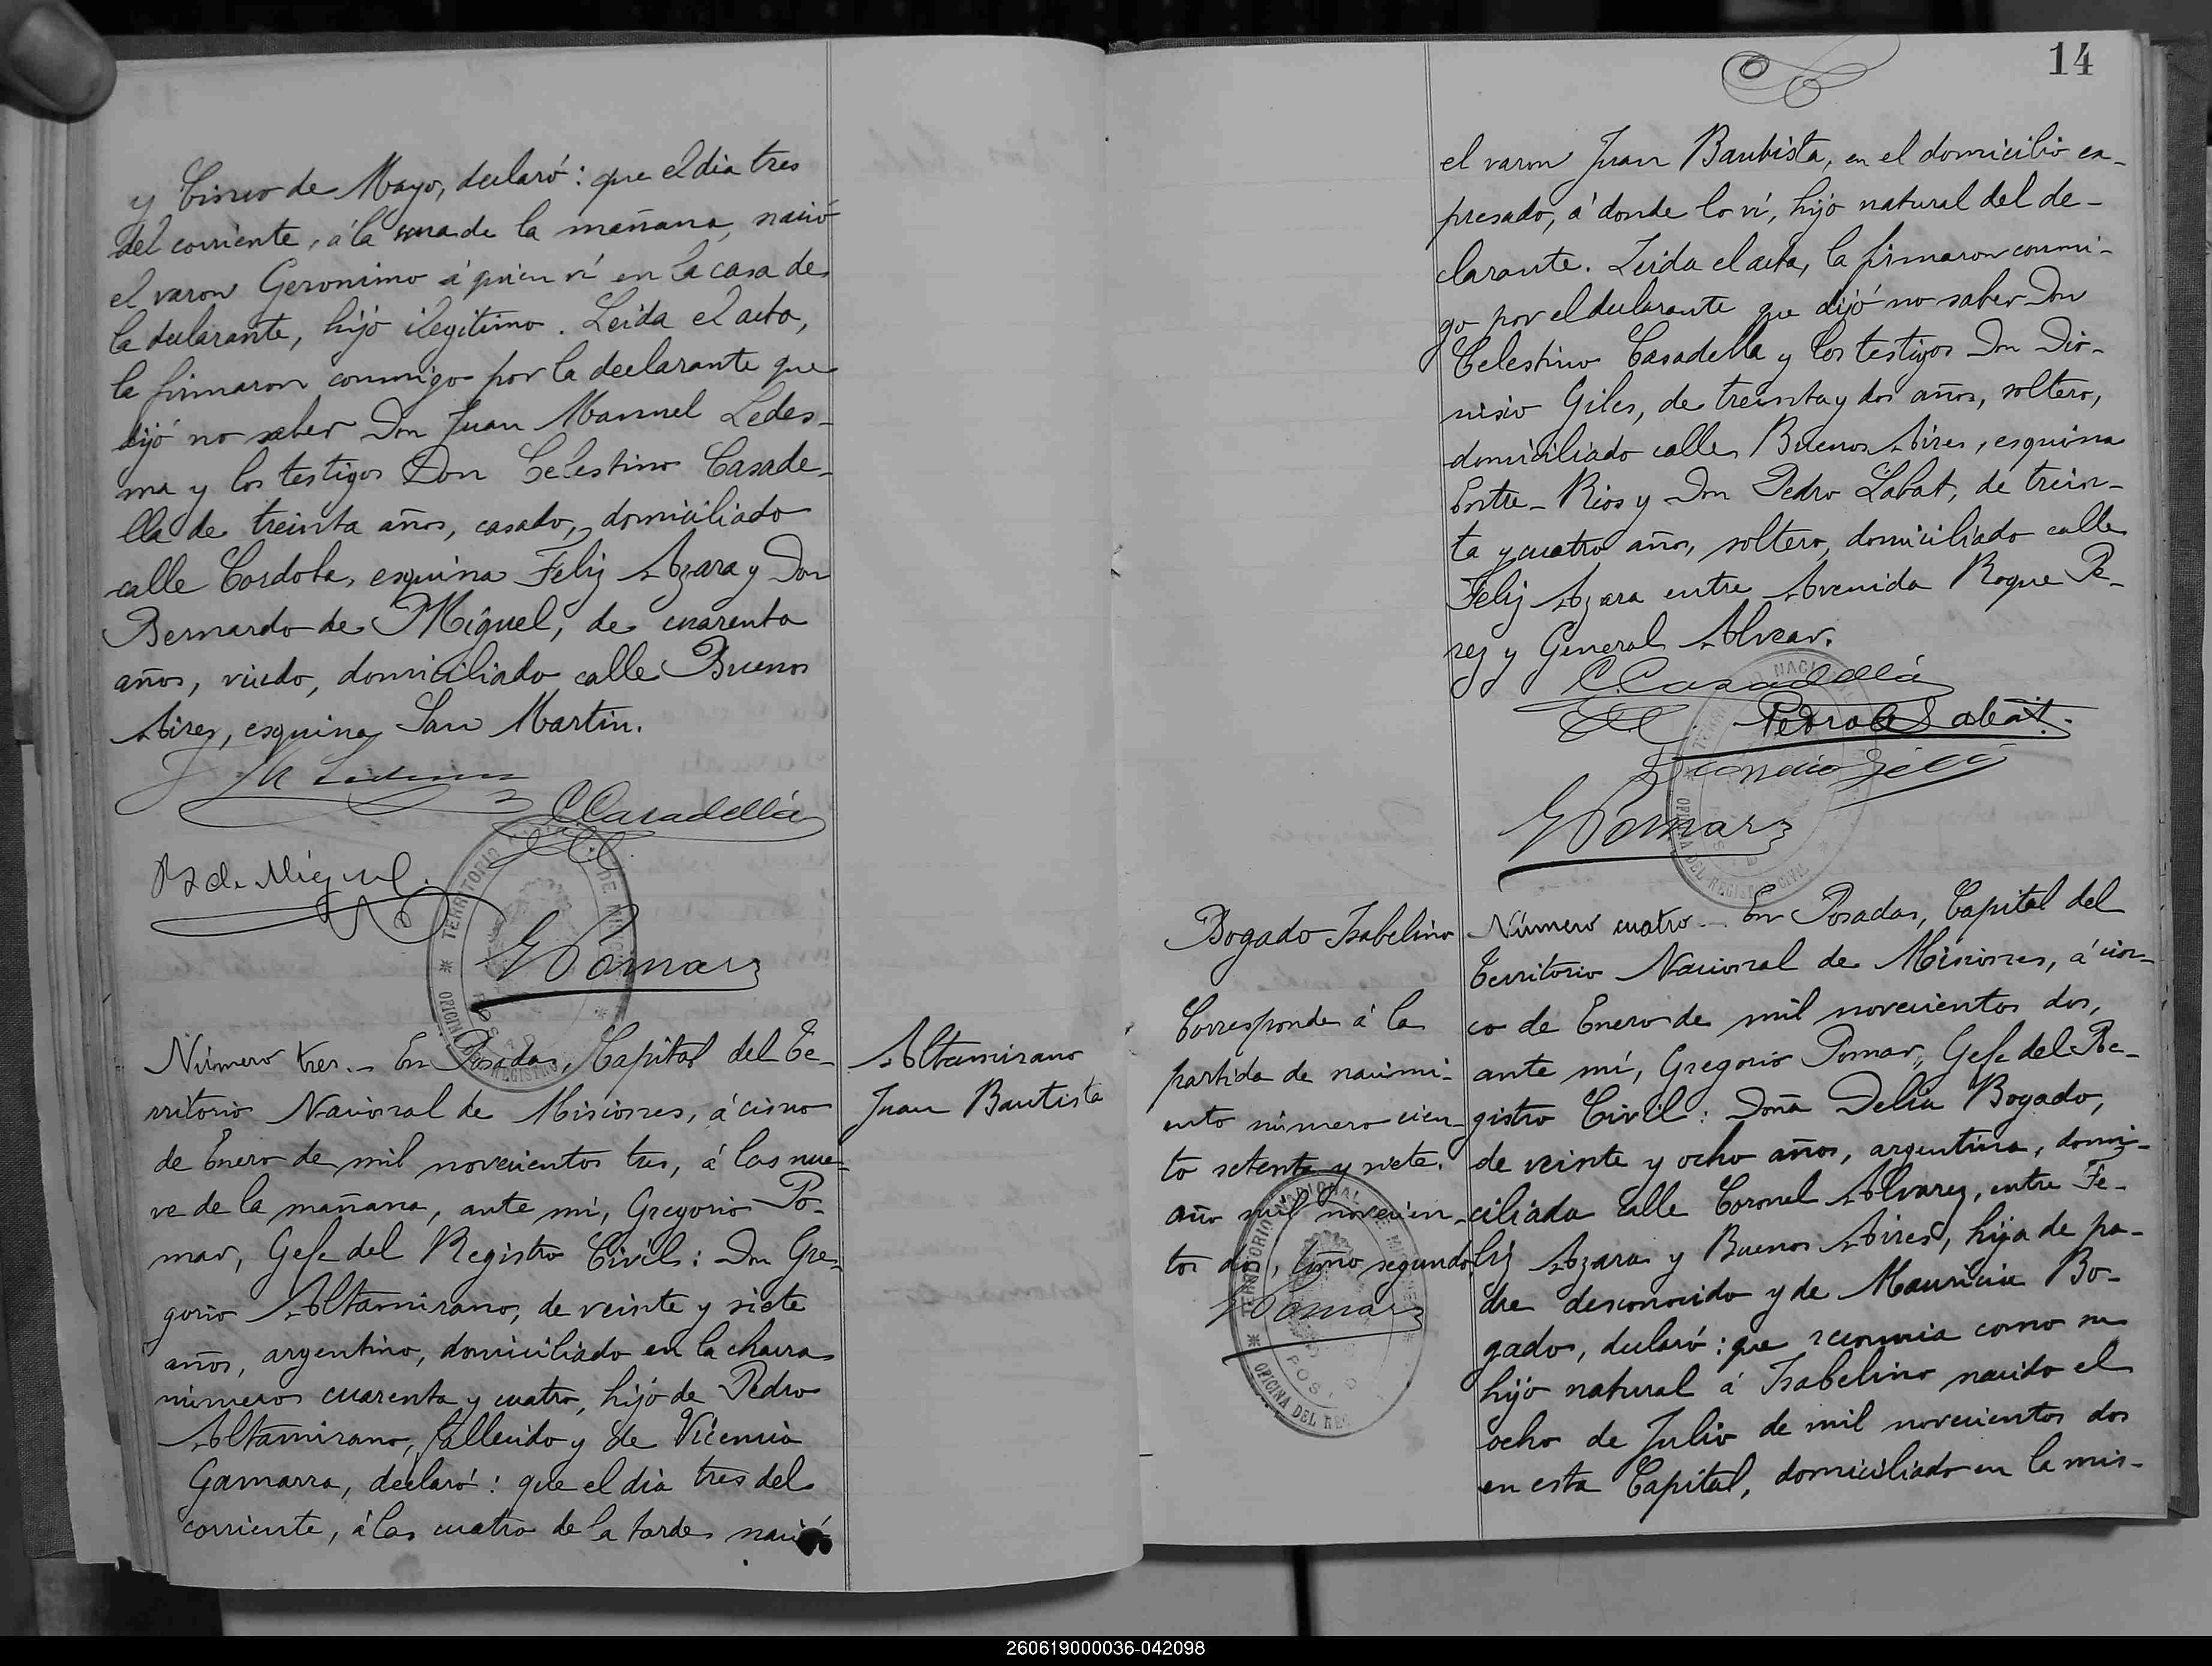 y Cinco de Mayo, declaró: que el dia tres
del corriente, á la una de la mañana, nació
el varon Geronimo á quien ví en la casa de
la declarante, hijo ilegitimo. Leida el acta,
la firmaron conmigo por la declarante que
dijó no saber Don Juan Manuel Ledes-
ma y los testigos Don Celestino Casade-
lla de treinta años, casado, domiciliado
calle Cordoba, esquina Feliz Azara y Don
Bernardo de Miguel, de cuarenta
años, viudo, domiciliado calle Buenos
Aires, esquina San Martin.
C. Casadellá
B de Miguel.
TERRITORIO
OFICINA DEL REGISTRO
G Pomar
Número tres.- En Posadas, Capital del Te-
rritorio Nacional de Misiones, á cinco
de Enero de mil novecientos tres, á las nue-
ve de la mañana, ante mí, Gregorio Po-
mar, Gefe del Registro Civil: Don Gre-
gorio Altamirano, de veinte y siete
años, argentino, domiciliado en la chacra
número cuarenta y cuatro, hijo de Pedro
Altamirano, fallecido y de Vicencia
Gamarra, declaró: que el dia tres del
corriente, á las cuatro de la tarde nació
Altamirano
Juan Bautista
14
el varon Juan Bautista, en el domicilio ex-
presado, á donde lo ví, hijo natural del de-
clarante. Leida el acta, la firmaron conmi-
go por el declarante que dijó no saber Don
Celestino Casadella y los testigos Don Dio-
nisio Giles, de treinta y dos años, soltero,
domiciliado calle Buenos Aires, esquina
Entre-Rios y Don Pedro Labat, de trein-
ta y cuatro años, soltero, domiciliado calle
Feliz Azara entre Avenida Roque Pe-
rez y General Alvear.
C. Casadellá
Pedro Labat.
Dionicio Giles
G Pomar
OFICINA DEL REGISTRO CIVIL
Bogado Isabelino
Corresponde á la
partida de nacimi-
ento número cien-
to setenta y siete.
año mil novecien-
tos dos, tomo segundo
G Pomar
TERRITORIO NACIONAL
OFICINA DEL REG
Número cuatro.- En Posadas, Capital del
Territorio Nacional de Misiones, á cin-
co de Enero de mil novecientos dos,
ante mí, Gregorio Pomar, Gefe del Re-
gistro Civil: Doña Delia Bogado,
de veinte y ocho años, argentina, domi-
ciliada calle Coronel Alvarez, entre Fe-
liz Azara y Buenos Aires, hija de pa-
dre desconocido y de Mauricia Bo-
gado, declaró: que reconocia como su
hijo natural á Isabelino nacido el
ocho de Julio de mil novecientos dos
en esta Capital, domiciliado en la mis-
260619000036-042098